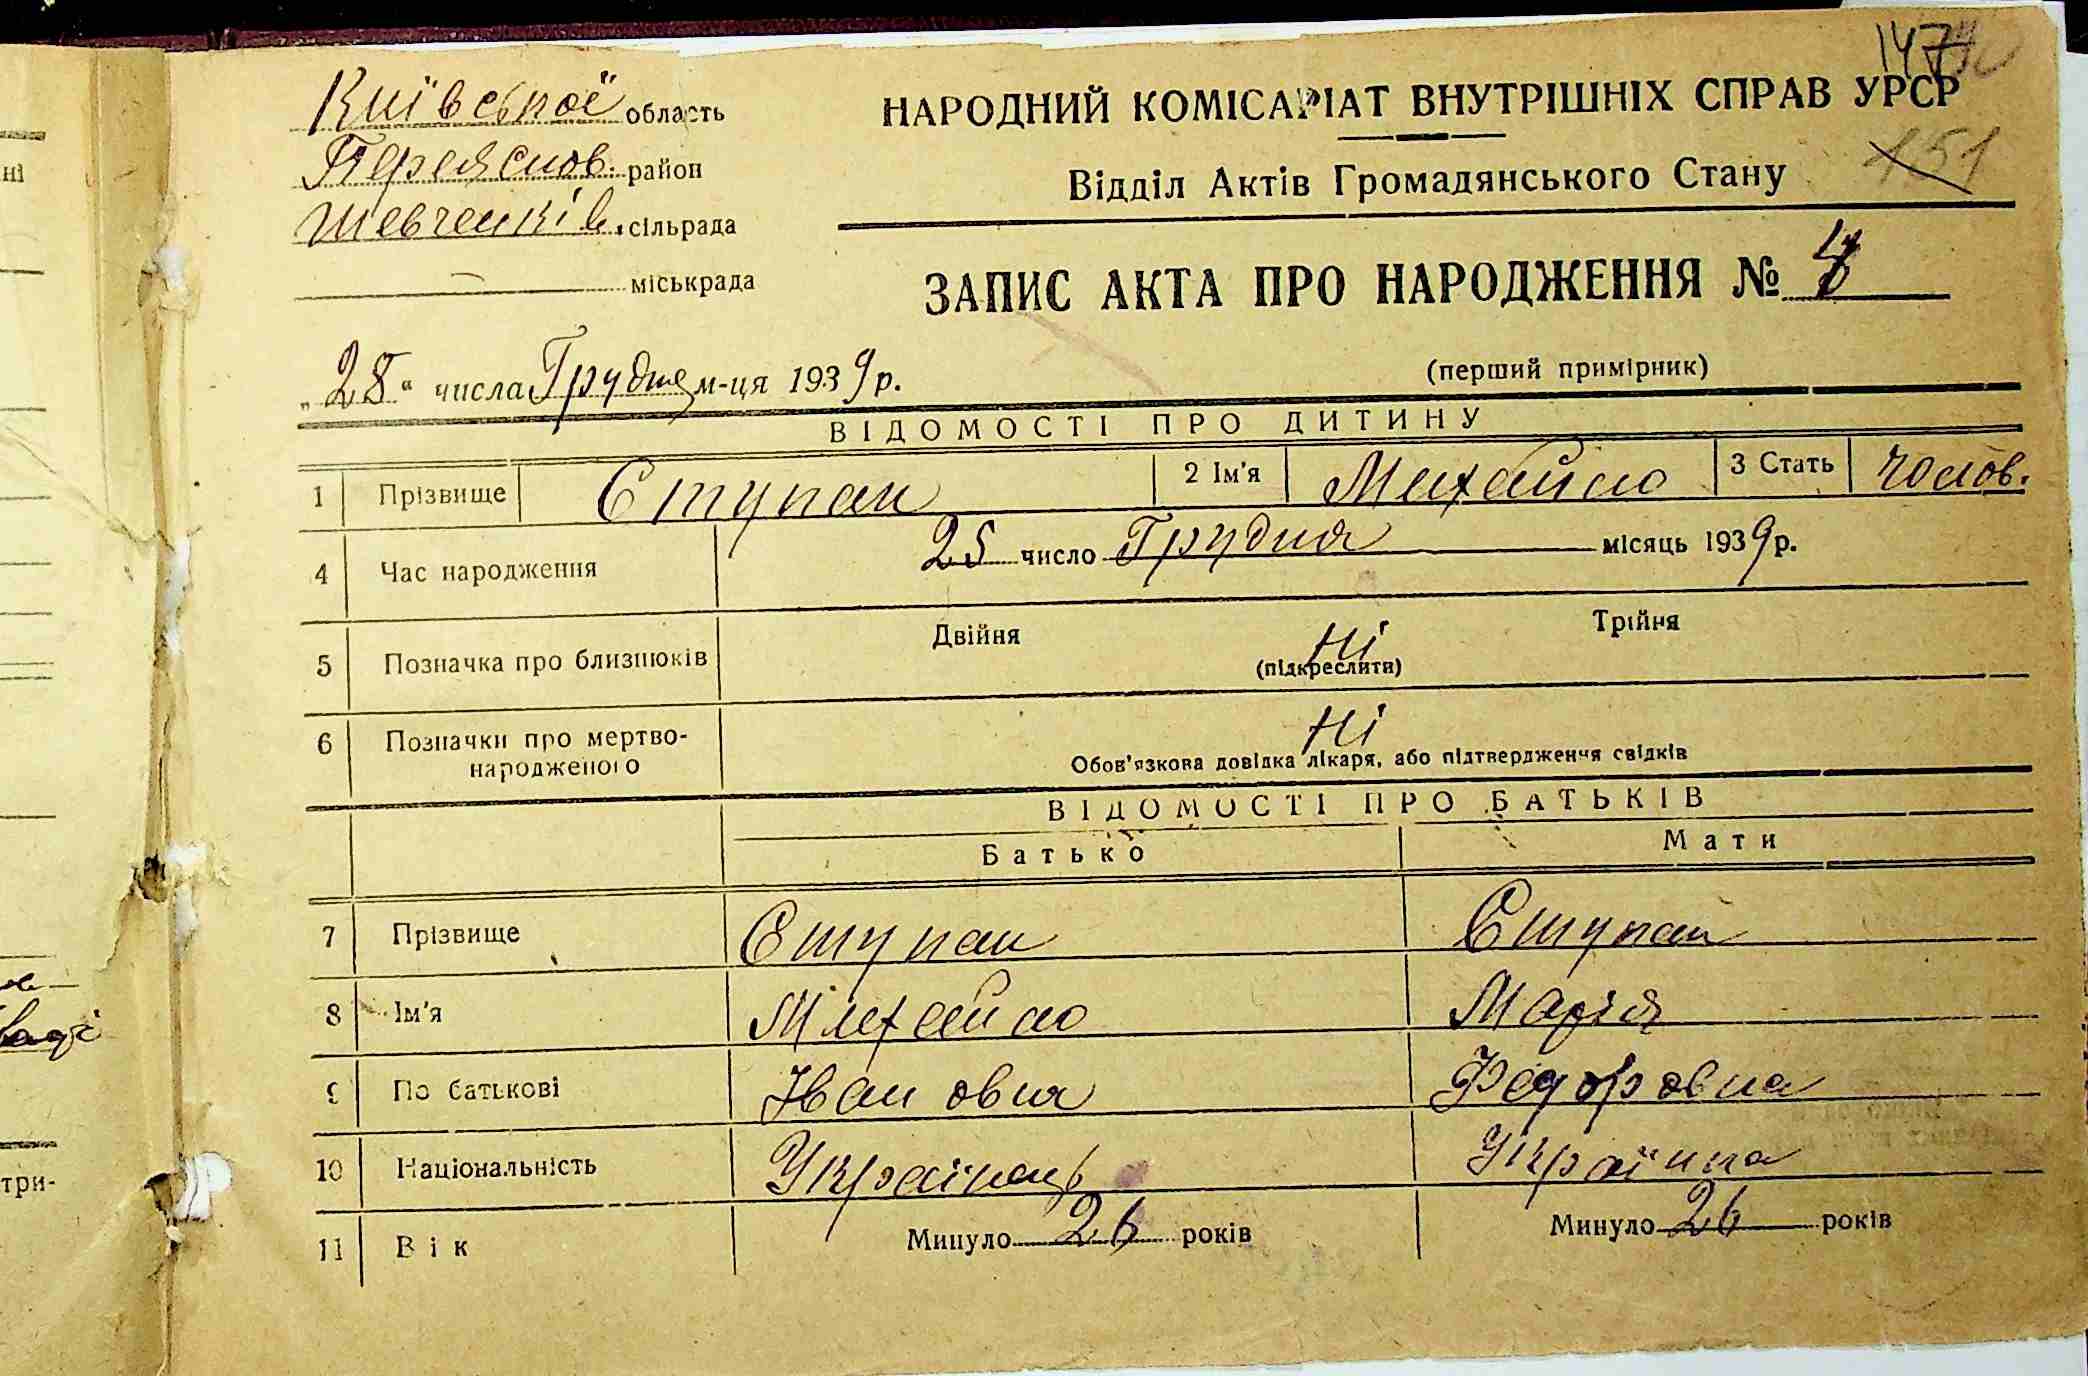 147
Київської область
НАРОДНИЙ КОМІСАРІАТ ВНУТРІШНІХ СПРАВ УРСР
Переяслов. район
Відділ Актів Громадянського Стану
151
Шевченків. сільрада
міськрада
ЗАПИС АКТА ПРО НАРОДЖЕННЯ №
(перший примірник)
„28“ числа Грудня м-ця 1939 р.
ВІДОМОСТІ ПРО ДИТИНУ
1 Прізвище Ступак 2 Ім'я Михайло 3 Стать чолов.
4 Час народження 25 число Грудня місяць 1939 р.
5 Позначка про близнюків Двійня Ні Трійня
(підкреслити)
6 Позначки про мертво-
народженого Ні
Обов'язкова довідка лікаря, або підтвердження свідків
ВІДОМОСТІ ПРО БАТЬКІВ
Батько Мати
7 Прізвище Ступак Ступак
8 Ім'я Михайло Марія
9 По батькові Іванович Федоровна
10 Національність Українець Українка
11 Вік Минуло 26 років Минуло 26 років
ні
три-